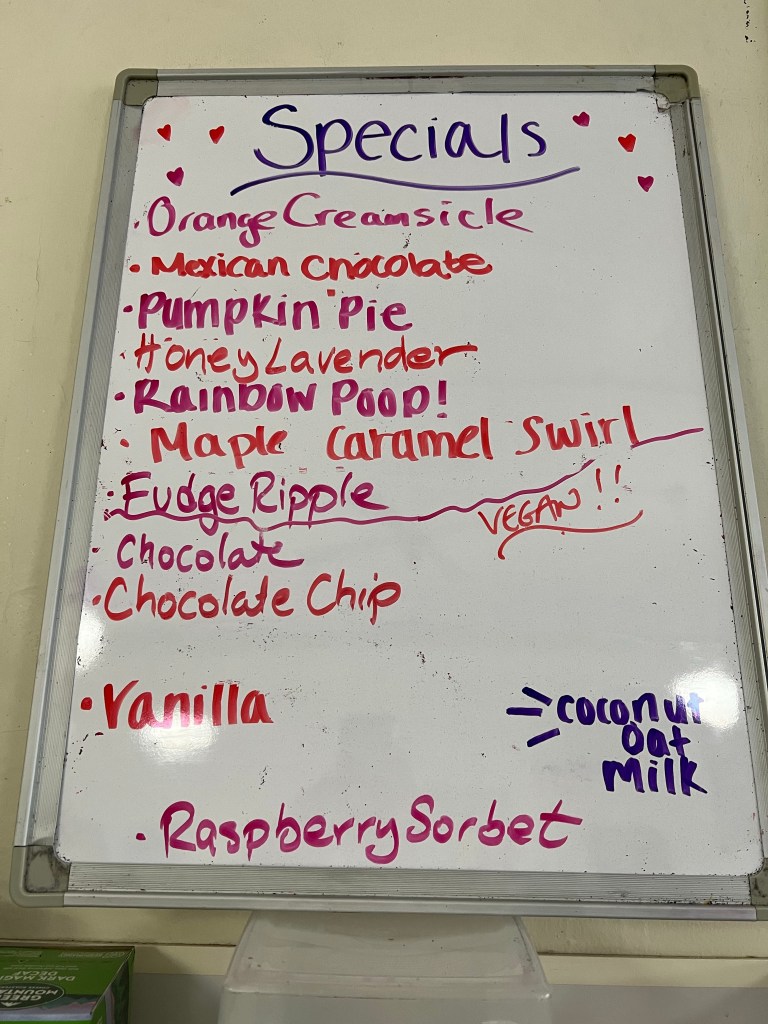 Specials
• Orange Creamsicle
• Mexican Chocolate
• Pumpkin Pie
• Honey Lavender
• Rainbow Poop!
• Maple Caramel Swirl
• Fudge Ripple
VEGAN!!
• Chocolate
• Chocolate Chip
• Vanilla
coconut
oat
milk
• Raspberry Sorbet
DARK MAGIC
DECAF
GREEN
MOUNTAIN